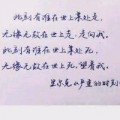 此刻有谁在世上某处走，
无缘无故在世上走，走向我。
此刻有谁在世上某处死，
无缘无故在世上死，望着我。
里尔克《严重的时刻